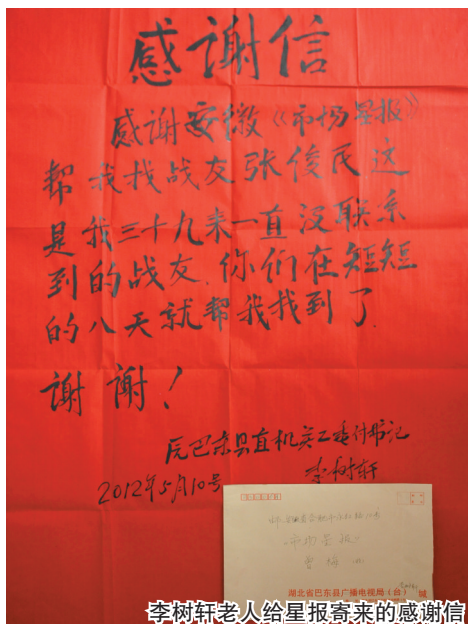 感谢信
感谢安徽《市场星报》
帮我找战友张俊民这
是我三十九来一直没联系
到的战友.你们在短短
的八天就帮我找到了.
谢谢!
巴东县直机关工委付书记
2012年5月10号
李树轩
市场星报
湖北省巴东县广播电视局(台)
李树轩老人给星报寄来的感谢信